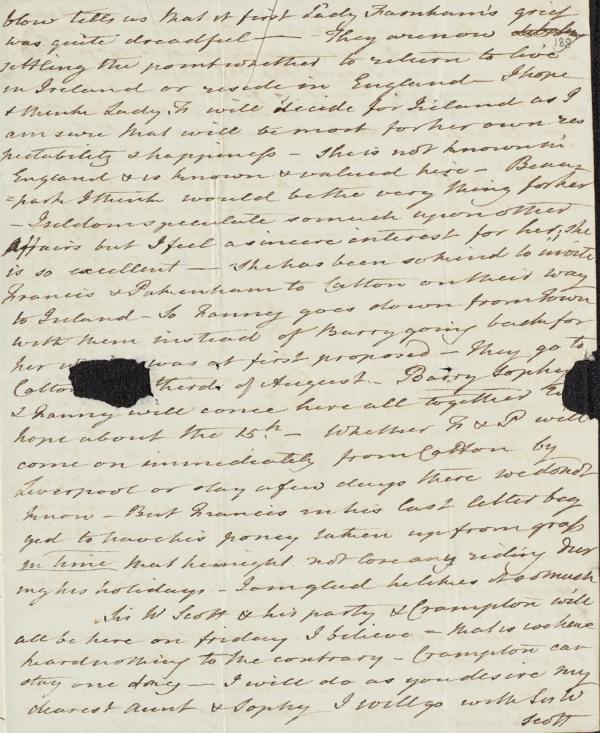 blow tells us that at first Lady Farnham's grief
was quite dreadful — They are now
188
settling the point whether to return to live
in Ireland or reside in England — I hope
& think Lady F. will decide for Ireland as I
am sure that will be most for her own res
pectability & happiness — she is not known in
England & is known & valued here —
=park I think would be the very thing for her
— I seldom speculate so much upon other
affairs but I feel a sincere interest for her; she
is so excellent — She has been so kind to invite
Francis & Pakenham to Catton on their way
to Ireland — So Fanny goes down from Town
with them instead of Barry going back for
her was at first proposed — They go to
Catto third of August — Barry Sophy
& Fanny will come here all together
hope about the 15th — Whether F & P will
come on immediately from Catton by
Liverpool or stay a few days there we do not
know — But Francis in his last letter beg
ged to have his poney taken up from grass
in time that he might not lose any riding dur
ing his holidays — I am glad he likes it so much
Sir W Scott & his party & Crampton will
all be here on friday I believe — that is we have
heard nothing to the contrary — Crampton can
stay one day — I will do as you desire my
dearest Aunt & Sophy I will go with Sir W
Scott